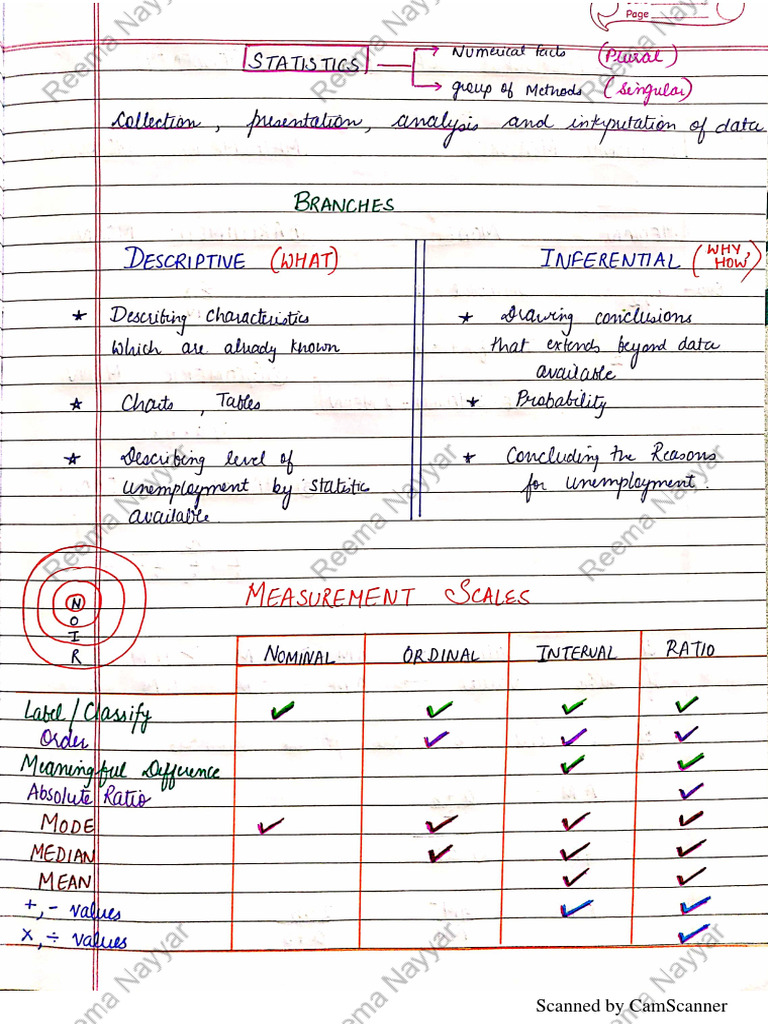 Page
STATISTICS → Numerical facts (Plural)
→ group of Methods (Singular)
Collection, presentation, analysis and intrputation of data
BRANCHES
DESCRIPTIVE (WHAT)
★ Describing characteristics
which are already known
★ Charts, Tables
★ Describing level of
unemployment by statistic
available.
INFERENTIAL (WHY, HOW)
★ Drawing conclusions
that extends beyond data
available
★ Probability
★ Concluding the Reasons
for unemployment.
N
O
I
R
MEASUREMENT SCALES
NOMINAL ORDINAL INTERVAL RATIO
Label/Classify ✓ ✓ ✓ ✓
Order ✓ ✓ ✓
Meaningful Difference ✓ ✓
Absolute Ratio ✓
MODE ✓ ✓ ✓ ✓
MEDIAN ✓ ✓ ✓
MEAN ✓ ✓
+, - values ✓ ✓
×, ÷ values ✓
Reema Nayyar
Reema Nayyar
Reema Nayyar
Reema Nayyar
Reema Nayyar
Reema Nayyar
Reema Nayyar
ema Nayyar
ema Nayyar
Scanned by CamScanner